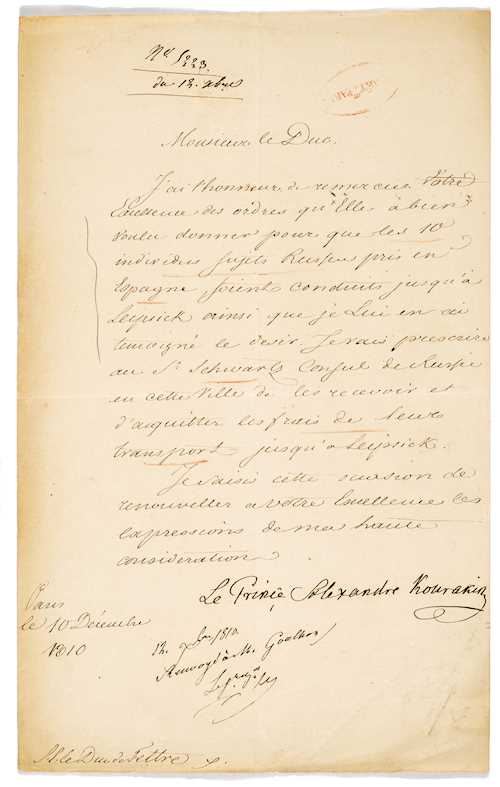 Nº 5223.
du 12. Xbre
Monsieur le Duc.
J'ai l'honneur de remercier Votre
Excellence des ordres qu'Elle à bien
voulu donner pour que les 10
individus sujets Russes pris en
Espagne soient conduits jusqu'à
Leipsick ainsi que je Lui en ai
temoigné le desir. Je vais prescrire
au Sr Schwartz Consul de Russie
en cette Ville de les recevoir et
d'acquitter les frais de leur
transport jusqu'à Leipsick.
Je saisis cette occasion de
renouveller a Votre Excellence les
expressions de ma haute
consideration
Le Prince Alexandre Kourakin
Paris
le 10 Décembre
1810
12. Xbre 1810
Renvoyé à M.
M. le Duc de Feltre